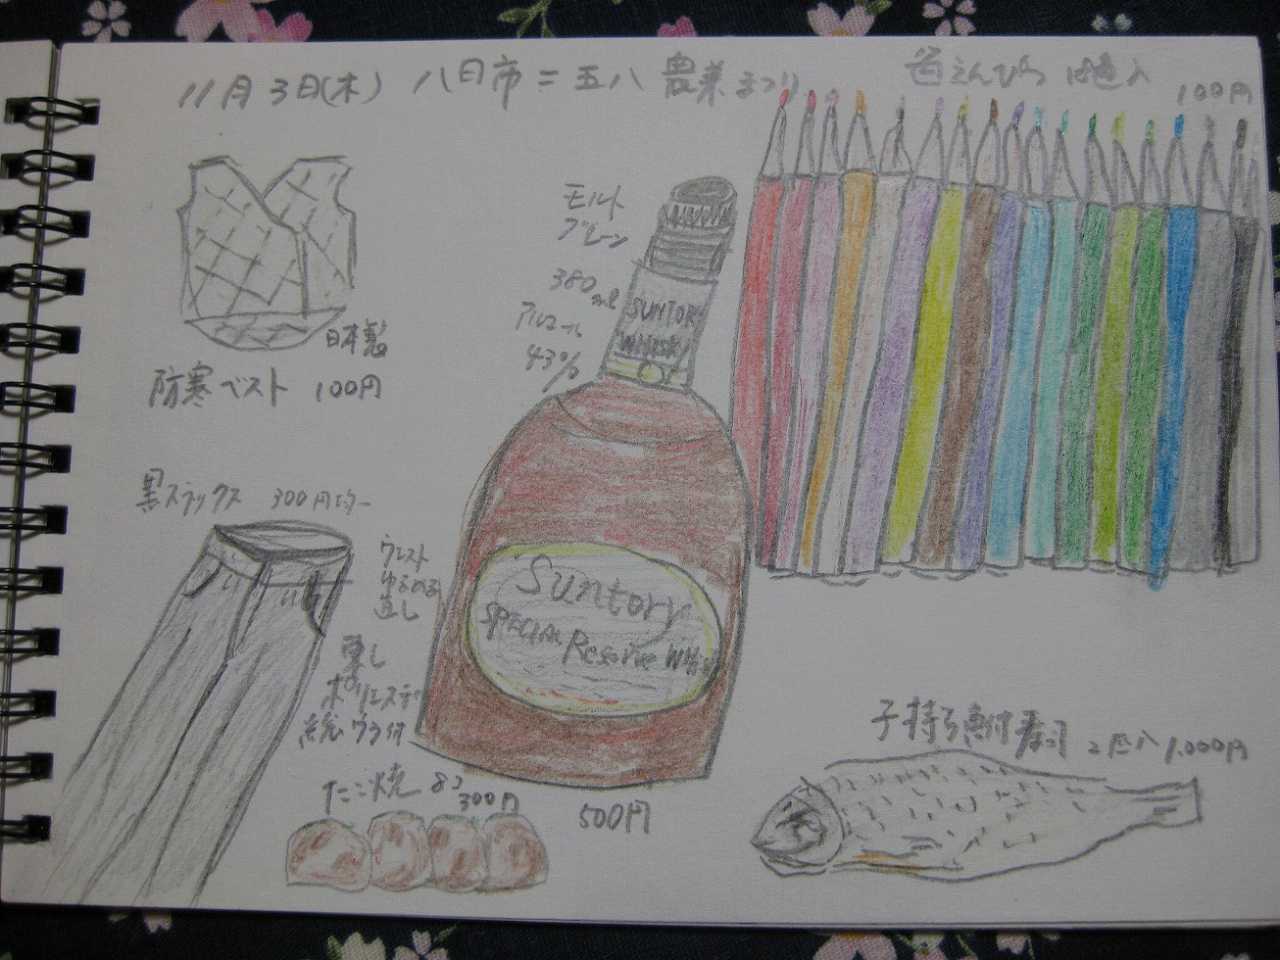 11月3日(木) 八日市=五八 農業まつり
色えんぴつ 18色入
100円
モルト
ブレーン
380ml
アルコール
43%
SUNTORY
WHISKY
日本製
防寒ベスト 100円
黒スラックス 300円均一
ウエスト
ゆるめる
直し
裏し
ポリエステ
総ウラ付
Suntory
SPECIAL
Reserve Whis
500円
たこ焼 8コ
300円
子持ち 2匹入 1,000円